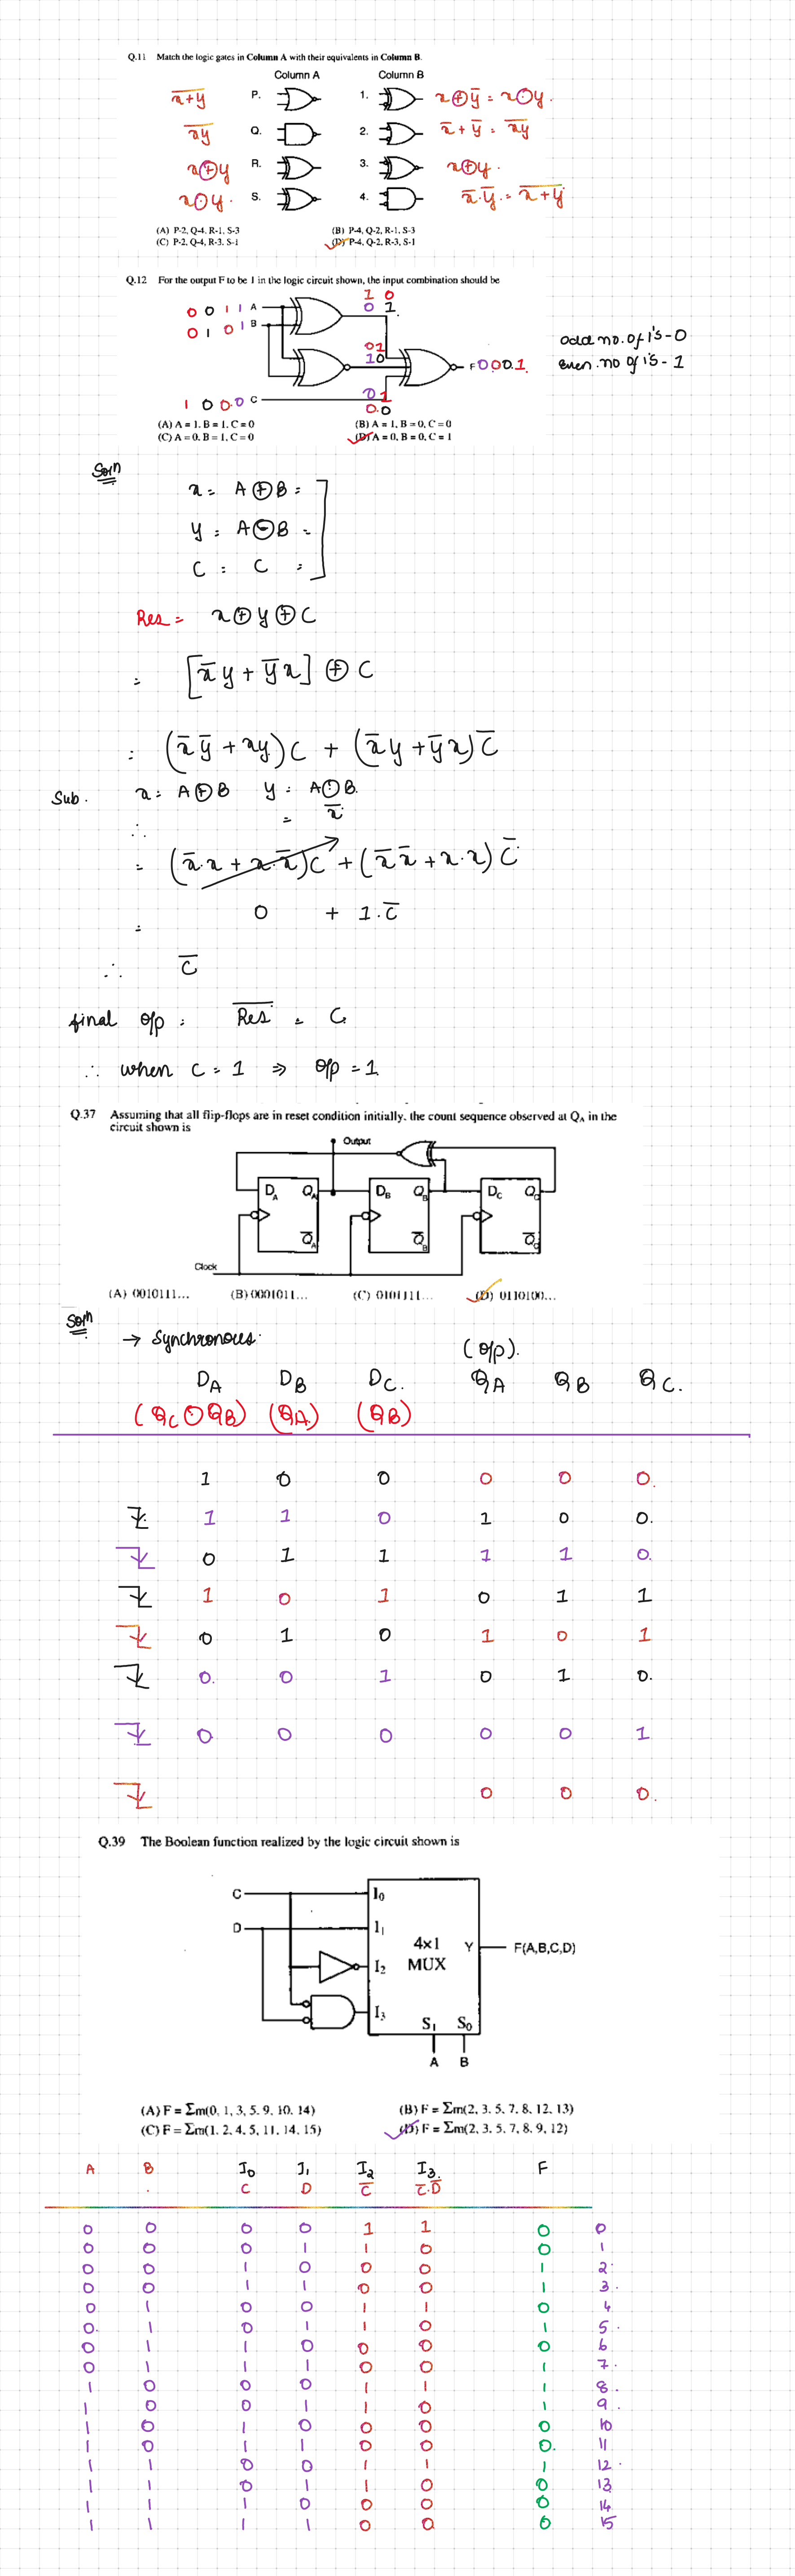 Q.11 Match the logic gates in Column A with their equivalents in Column B.
Column A Column B
x̅+̅y̅ P. 1. x⊕y̅ = x⊙y.
x̅y̅ Q. 2. x̅ + y̅ = x̅y̅
x⊕y R. 3. x⊕y.
x⊙y. S. 4. x̅.y̅ = x̅+̅y̅
(A) P-2, Q-4, R-1, S-3 (B) P-4, Q-2, R-1, S-3
(C) P-2, Q-4, R-3, S-1 (D) P-4, Q-2, R-3, S-1
Q.12 For the output F to be 1 in the logic circuit shown, the input combination should be
1 0
0 0 1 1 A 0 1.
0 1 0 1 B
odd no. of 1's - 0
01
10 F 0 0 0.1
even. no of 1's - 1
1 0 0.0 C 01
0.0
(A) A = 1, B = 1, C = 0 (B) A = 1, B = 0, C = 0
(C) A = 0, B = 1, C = 0 (D) A = 0, B = 0, C = 1
Soln
x = A⊕B =
y = A⊙B =
C = C =
Res = x⊕y⊕C
= [x̅y + y̅x] ⊕ C
= (x̅y̅ + xy)C + (x̅y + y̅x)C̅
Sub. x = A⊕B y = A⊙B.
∴ = x̅
= (x̅.x + x.x̅)C + (x̅x̅ + x.x)C̅
= 0 + 1.C̅
∴ C̅
final o/p = R̅e̅s̅ = C.
∴ when C = 1 ⇒ o/p = 1
Q.37 Assuming that all flip-flops are in reset condition initially, the count sequence observed at QA in the
circuit shown is
Output
DA QA DB QB DC QC
Q̅A Q̅B Q̅C
Clock
(A) 0010111... (B) 0001011... (C) 0101111... (D) 0110100...
Soln
→ Synchronous.
(o/p).
DA DB DC. QA QB QC.
(QC⊙QB) (QA) (QB)
1 0 0 0 0 0.
1 1 0 1 0 0.
0 1 1 1 1 0.
1 0 1 0 1 1
0 1 0 1 0 1
0. 0 1 0 1 0.
0 0 0 0 0 1
0 0 0.
Q.39 The Boolean function realized by the logic circuit shown is
C I0
D I1
4x1 Y F(A,B,C,D)
I2 MUX
I3
S1 S0
A B
(A) F = Σm(0, 1, 3, 5, 9, 10, 14) (B) F = Σm(2, 3, 5, 7, 8, 12, 13)
(C) F = Σm(1, 2, 4, 5, 11, 14, 15) (D) F = Σm(2, 3, 5, 7, 8, 9, 12)
A B I0 I1 I2 I3. F
. C D C̅ C̅.D̅
0 0 0 0 1 1 0 0
0 0 0 1 1 0 0 1
0 0 1 0 0 0 1 2.
0 0 1 1 0 0 1 3.
0 1 0 0 1 1 0 4
0. 1 0 1 1 0 1 5.
0 1 1 0 0 0 0 6
0 1 1 1 0 0 1 7.
1 0 0 0 1 1 1 8.
1 0 0 1 1 0 1 9.
1 0 1 0 0 0 0 10
1 0 1 1 0 0 0. 11
1 1 0 0 1 1 1 12.
1 1 0 1 1 0 0 13
1 1 1 0 0 0 0 14
1 1 1 1 0 0 0 15